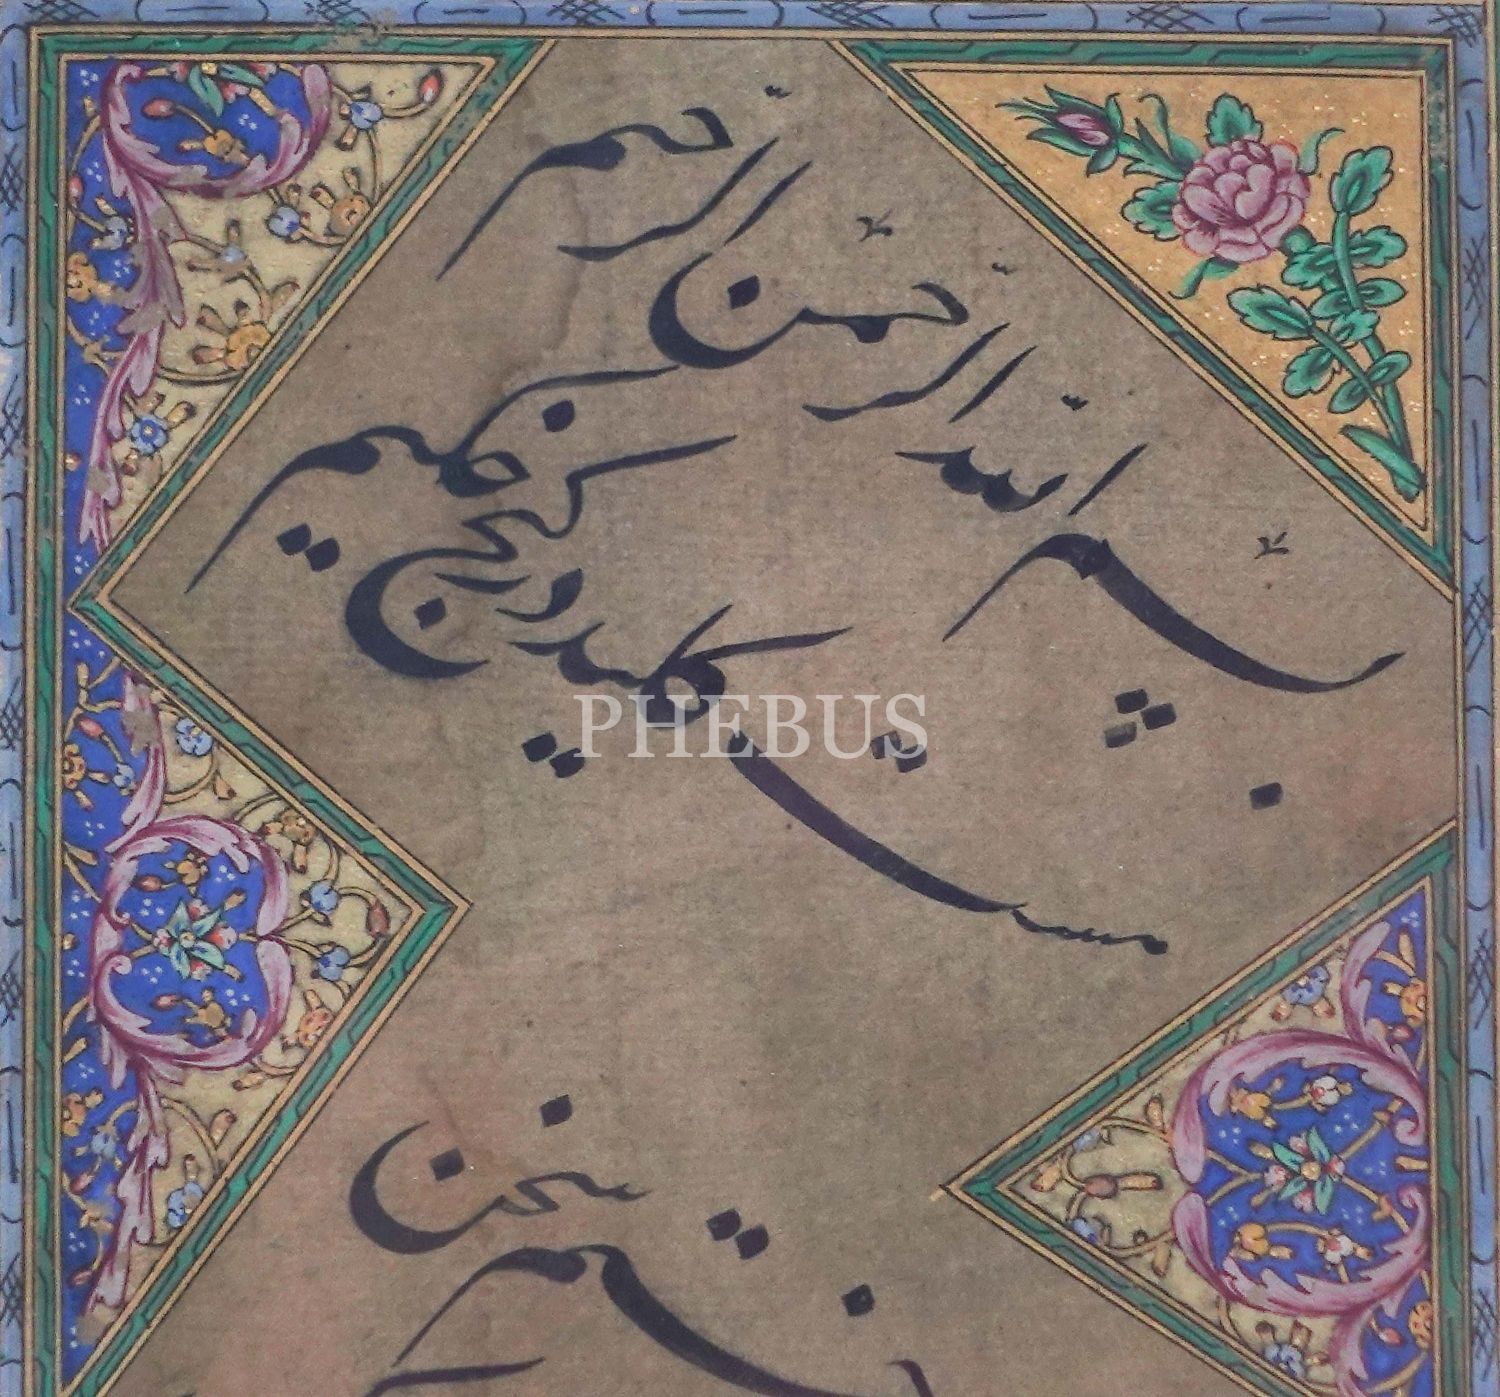 بسم الله الرحمن الرحیم
هست کلید در گنج حکیم
ختم سخن
PHEBUS